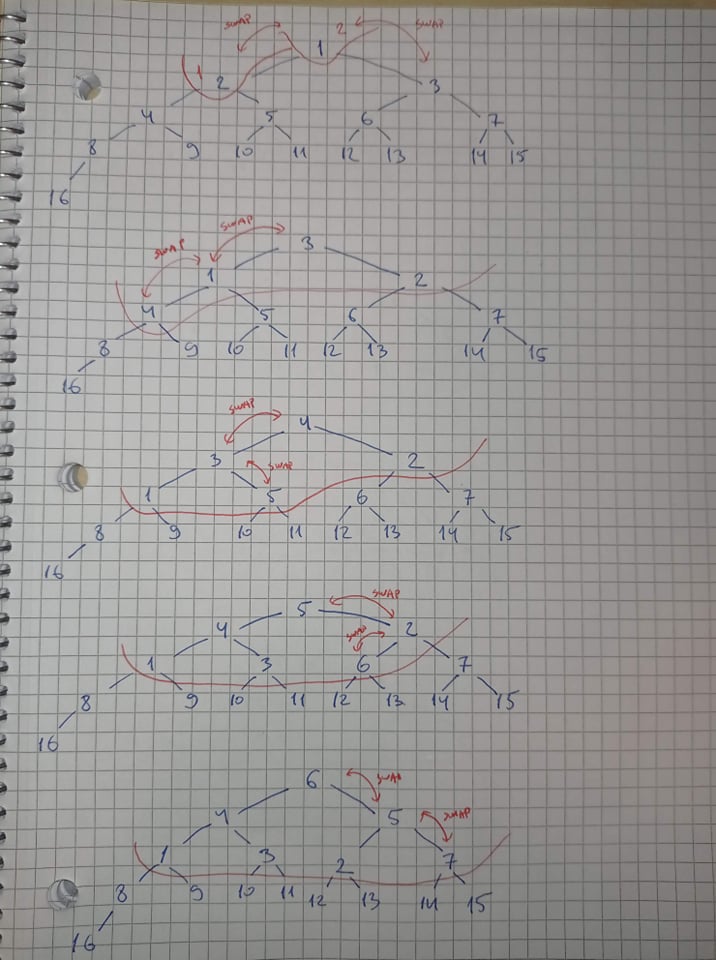 SWAP 2 SWAP
1
1 2 3
4 5 6 7
8 9 10 11 12 13 14 15
16
SWAP
SWAP 3
1 2
4 5 6 7
8 9 10 11 12 13 14 15
16
SWAP 4
3 SWAP 2
1 5 6 7
8 9 10 11 12 13 14 15
16
5 SWAP
4 SWAP 2
1 3 6 7
8 9 10 11 12 13 14 15
16
6 SWAP
4 5 SWAP
1 3 2 7
8 9 10 11 12 13 14 15
16